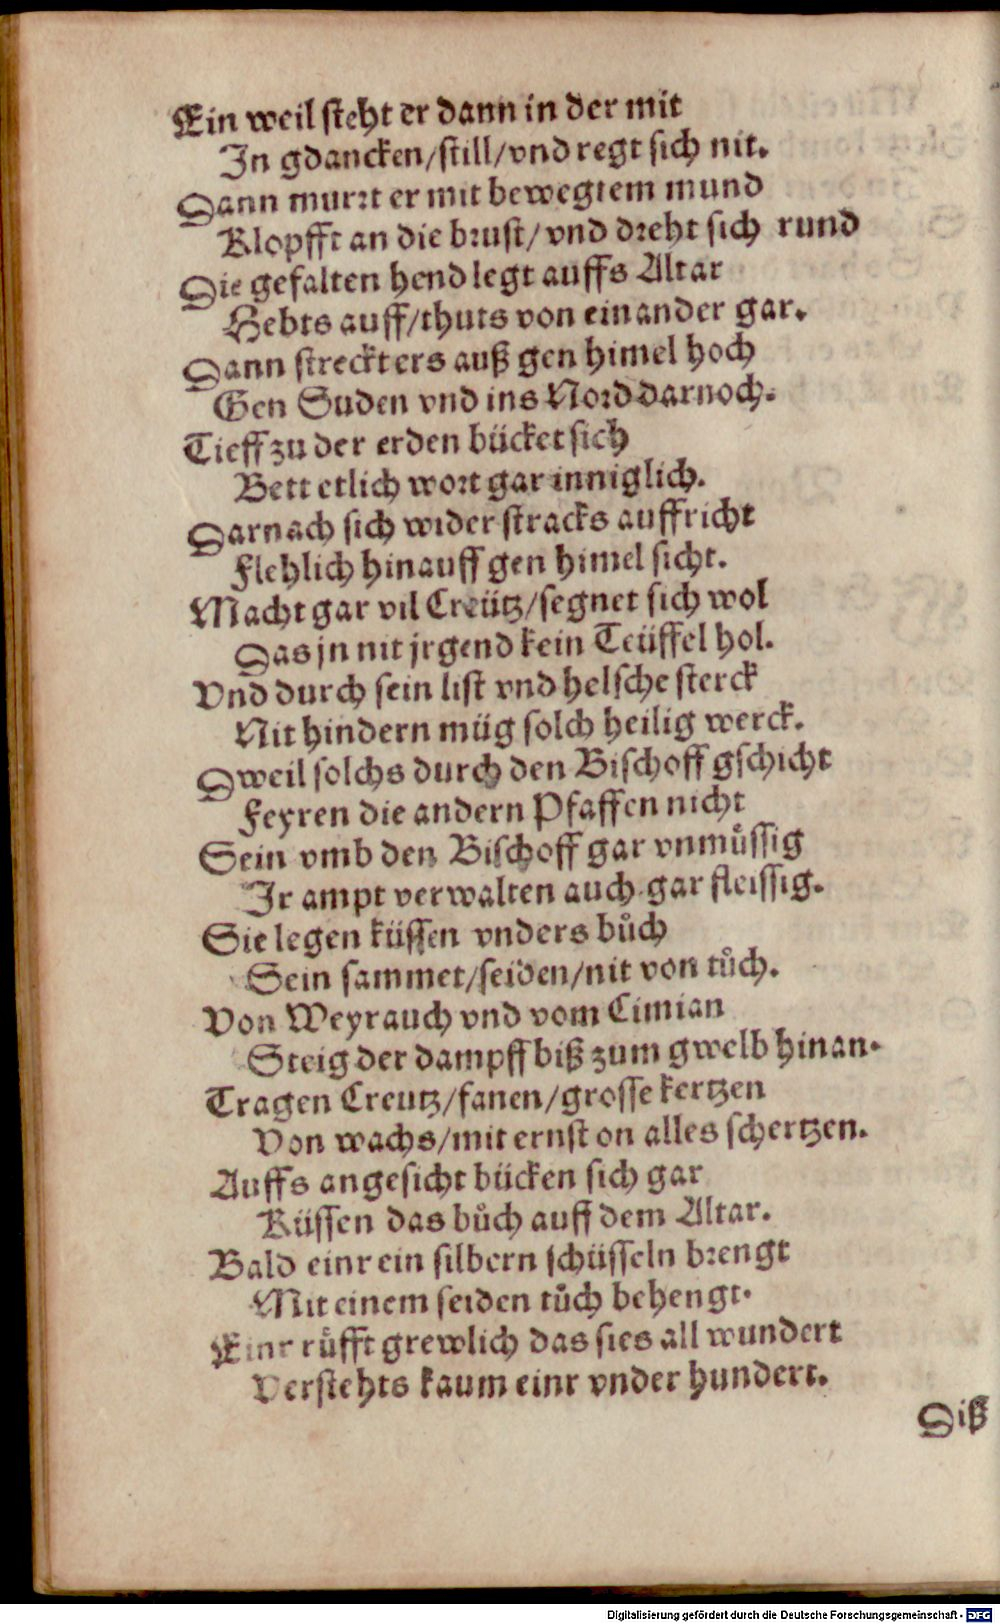 Ein weil steht er dann in der mit
In gdancken/still/vnd regt sich nit.
Dann murrt er mit bewegtem mund
Klopfft an die brust/vnd dreht sich rund
Die gefalten hend legt auffs Altar
Hebts auff/thuts von einander gar.
Dann streckt ers auß gen himel hoch
Gen Suden vnd ins Nord darnoch.
Tieff zu der erden bücket sich
Bett etlich wort gar inniglich.
Darnach sich wider stracks auffricht
Flehlich hinauff gen himel sicht.
Macht gar vil Creütz/segnet sich wol
Das jn nit jrgend kein Teüffel hol.
Vnd durch sein list vnd helsche sterck
Nit hindern müg solch heilig werck.
Dweil solchs durch den Bischoff gschicht
Feyren die andern Pfaffen nicht
Sein vmb den Bischoff gar vnmůssig
Ir ampt verwalten auch gar fleissig.
Sie legen küssen vnders bůch
Sein sammet/seiden/nit von tůch.
Von Weyrauch vnd vom Cimian
Steig der dampff biß zum gwelb hinan.
Tragen Creutz/fanen/grosse kertzen
Von wachs/mit ernst on alles schertzen.
Auffs angesicht bücken sich gar
Küssen das bůch auff dem Altar.
Bald einr ein silbern schüsseln brengt
Mit einem seiden tůch behengt.
Einr růfft grewlich das sies all wundert
Verstehts kaum einr vnder hundert.
Diß
Digitalisierung gefördert durch die Deutsche Forschungsgemeinschaft - DFG